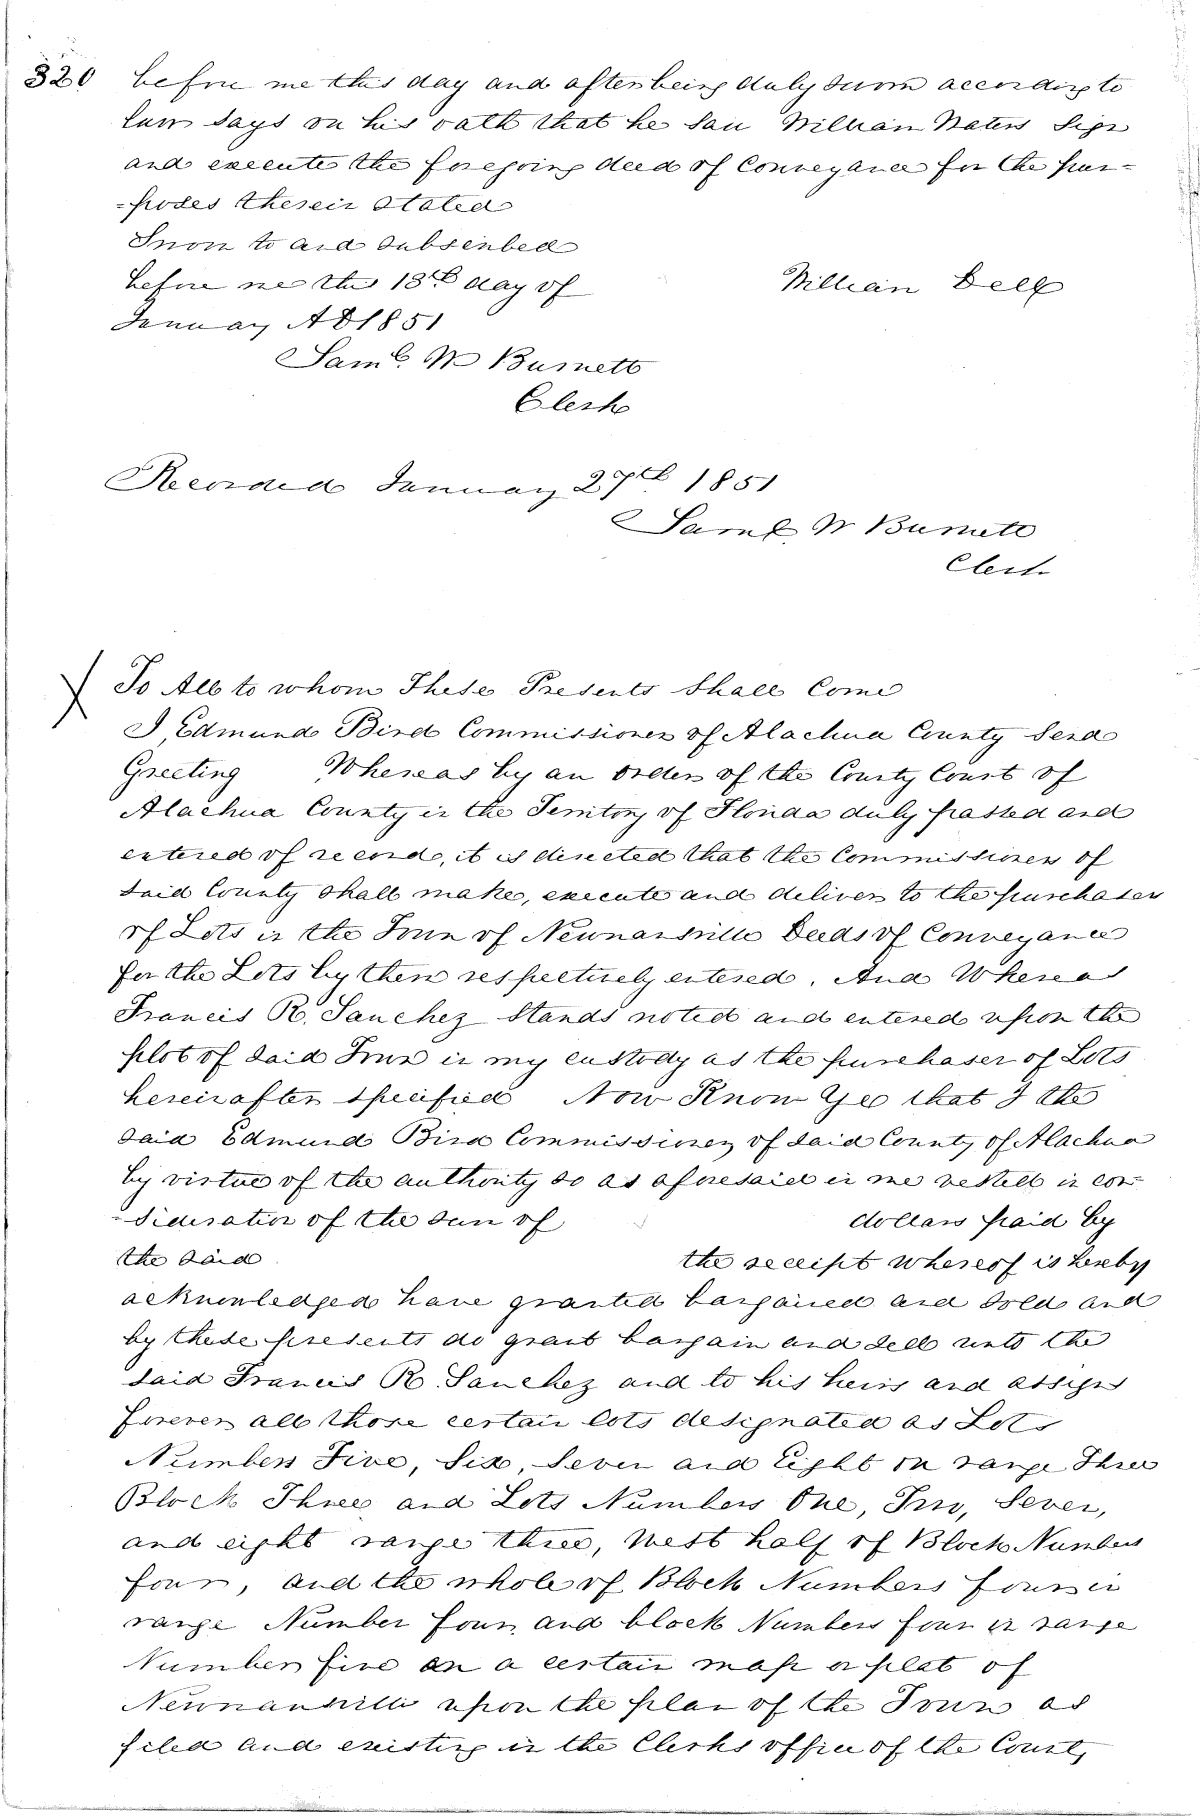 320 before me this day and after being duly sworn according to
law says on his oath that he saw William Waters sign
and execute the foregoing deed of Conveyance for the pur-
-poses therein stated
Sworn to and subscribed
before me this 13th day of William Dell
January AD 1851
Saml. W Burnett
Clerk
Recorded January 27th 1851
Saml. W Burnett
Clerk
To All to whom These Presents Shall Come
I, Edmund Bird Commissioner of Alachua County Send
Greeting Whereas by an order of the County Court of
Alachua County in the Territory of Florida duly passed and
entered of record, it is directed that the Commissioner of
said County shall make, execute and deliver to the purchaser
of Lots in the Town of Newnansville Deeds of Conveyance
for the Lots by them respectively entered. And Whereas
Francis R. Sanchez stands noted and entered upon the
plot of said Town in my custody as the purchaser of Lots
hereinafter specified Now Know Yee that I the
said Edmund Bird Commissioner of said County of Alachua
by virtue of the authority so as aforesaid in me vested in con-
-sideration of the sum of dollars paid by
the said the receipt whereof is hereby
acknowledged have granted bargained and sold and
by these presents do grant bargain and sell unto the
said Francis R. Sanchez and to his heirs and assigns
forever all those certain lots designated as Lots
Numbers Five, Six, Seven and Eight in range Three
Block Three and Lots Numbers One, Two, Seven,
and eight range three, West half of Block Numbers
four, and the whole of Block Numbers four in
range Number four and block Numbers four in range
Number five on a certain map or plat of
Newnansville upon the plan of the Town as
filed and existing in the Clerks office of the County